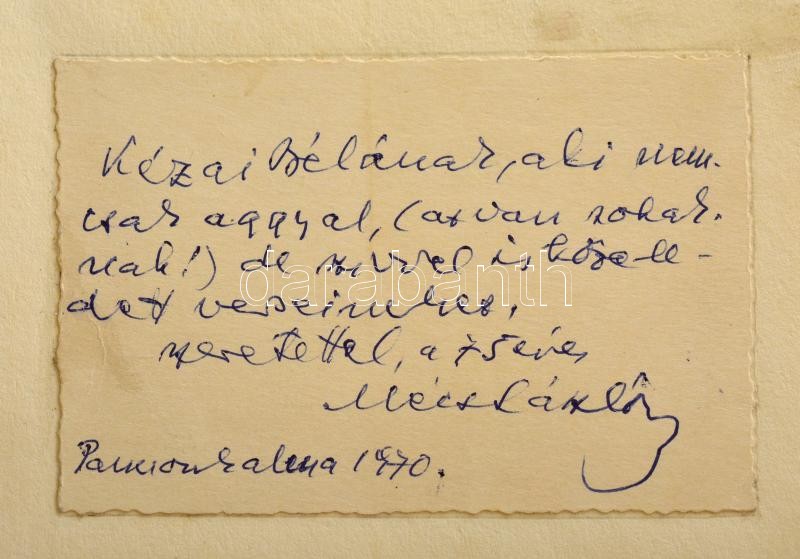 Kézai Bélának, aki nem-
csak aggyal, (az van sokak-
nak!) de szívvel is köze le-
dett verseimhez,
szeretettel, a 75 éves
Mécs László
Pannonhalma 1970.
darabanth